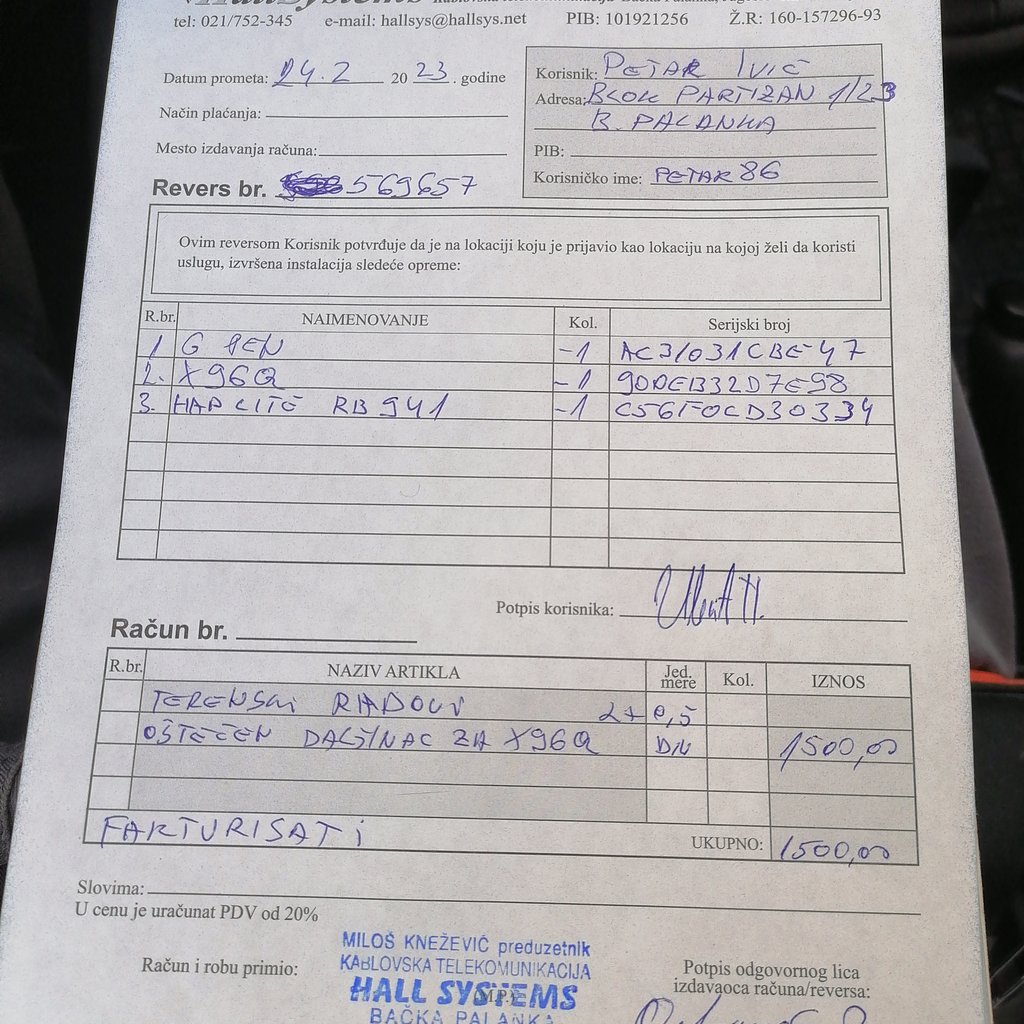 HallSystems
tel: 021/752-345 e-mail: hallsys@hallsys.net PIB: 101921256 Ž.R: 160-157296-93
Datum prometa: 24.2 2023. godine
Način plaćanja:
Mesto izdavanja računa:
Revers br. 569657
Korisnik: PETAR IVIĆ
Adresa: BLOK PARTIZAN 1/23
B. PALANKA
PIB:
Korisničko ime: PETAR 86
Ovim reversom Korisnik potvrđuje da je na lokaciji koju je prijavio kao lokaciju na kojoj želi da koristi
uslugu, izvršena instalacija sledeće opreme:
R.br. NAIMENOVANJE Kol. Serijski broj
1 G -1 AC31031CBE47
2. X96Q -1 90DEB32D7E98
3. HAP LITE RB 941 -1 C56F0CD30334
Potpis korisnika:
Račun br.
R.br. NAZIV ARTIKLA Jed. mere Kol. IZNOS
TERENSKI RADOVI 2+ 0,5
OŠTEĆEN DALJINAC ZA X96Q DIN 1500,00
FAKTURISATI UKUPNO: 1500,00
Slovima:
U cenu je uračunat PDV od 20%
Račun i robu primio:
MILOŠ KNEŽEVIĆ preduzetnik
KABLOVSKA TELEKOMUNIKACIJA
HALL SYSTEMS
(M.P.)
BAČKA PALANKA
Potpis odgovornog lica
izdavaoca računa/reversa: